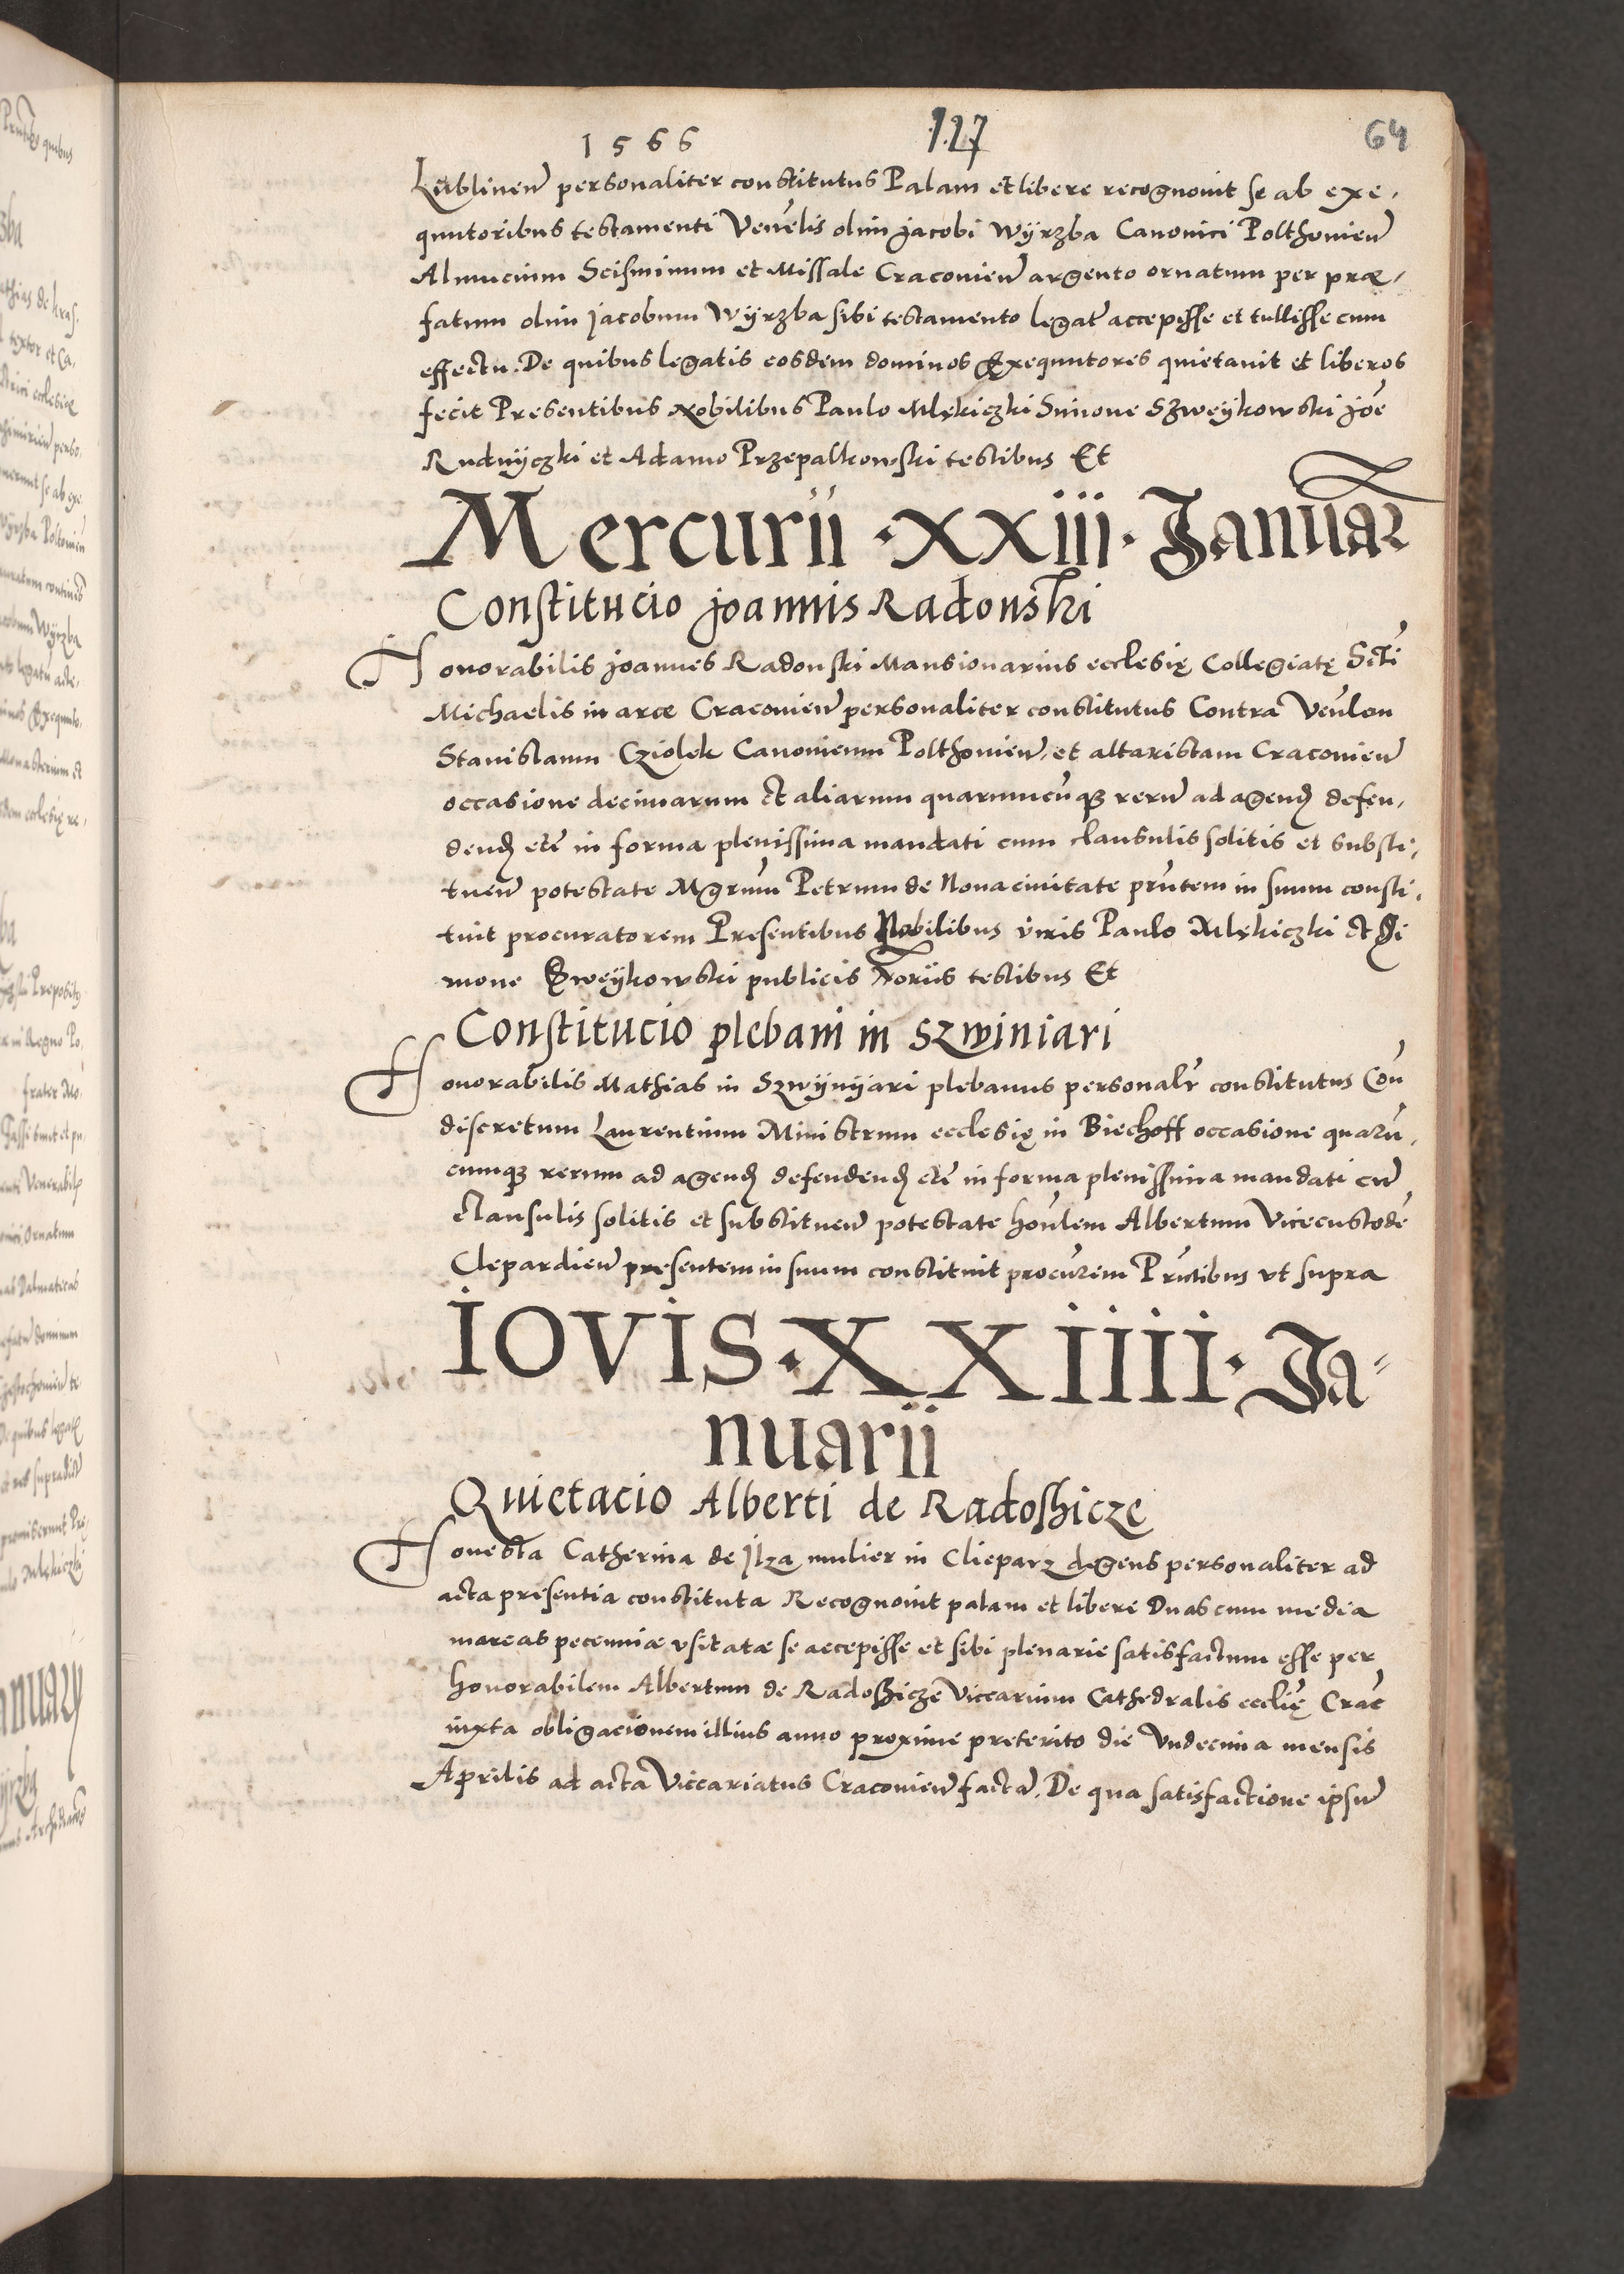 1566 127 64
Lublinen personaliter constitutus Palam et libere recognouit se ab exe,
quutoribus testamenti Venẽlis olim Jacobi Wÿrzba Canonici Polthonien
Almucium Scisminum et Missale Craconien argento ornatum per præ,
fatum olim Jacobum Wÿrzba sibi testamento legat accepisse et tullisse cum
effectu. De quibus legatis eosdem dominos Exequutores quietauit et liberos
fecit Presentibus Nobilibus Paulo Mlękiczki Simone Szweÿkowski Joẽ
Rudnÿczki et Adamo Przepalkowski testibus Et
Mercurii · XXIII · Januar
Constitucio Joannis Radonski
Honorabilis Joannes Radonski Mansionarius ecclesię Collegiatę Scti
Michaelis in arce Craconien personaliter constitutus Contra Veñlem
Stanislaum Cziolek Canonicum Polthonien, et altaristam Craconien
occasione decimarum et aliarum quarumcũque rerum ad agend defen,
dend etc in forma plenissima mandati cum clausulis solitis et substi,
tuen potestate Mgrum Petrum de Noua ciuitate pñtem in suum consti,
tuit procuratorem Presentibus Nobilibus viris Paulo Mlękiczki et Si
mone Szweÿkowski publicis Noriis testibus Et
Constitucio plebani in Szwiniari
Honorabilis Mathias in Szwÿnÿari plebanus personalr constitutus Con
discretum Laurentium Ministrum ecclesię in Biechoff occasione quarũ,
cumque rerum ad agend defendend etc in forma plenissima mandati cũ
clausulis solitis et substituen potestate hoñlem Albertum Vicecustodẽ
Clepardien presentem in suum constituit procurem Pñtibus vt supra
IOVIS · XXIIII · Ja=
nuarii
Quietacio Alberti de Radoshicze
Honesta Catherina de Jlza mulier in Clieparz degens personaliter ad
acta presentia constituta Recognouit palam et libere Duas cum media
marcas pecuniæ vsitatæ se accepisse et sibi plenarie satisfactum esse per
honorabilem Albertum de Radoshicze Viccarium Cathedralis ecclię Crac
iuxta obligacionem illius anno proxime preterito die Vndecima mensis
Aprilis ad acta Viccariatus Craconien factã. De qua satisfactione ipsum